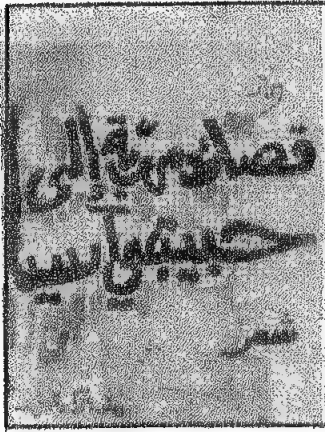 قصائد إلى
حبيبتي آسيا
شعر